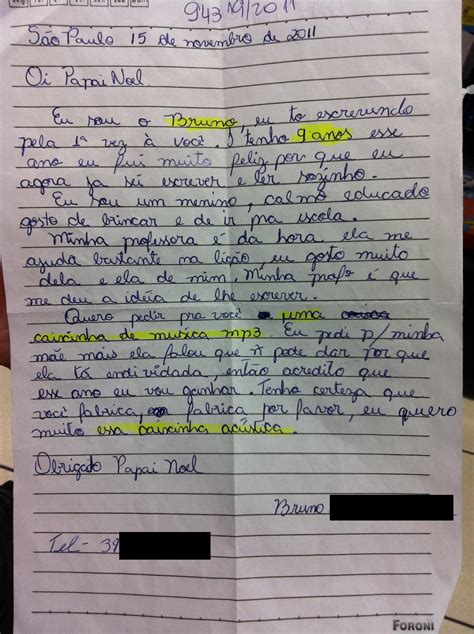 943 19/2011
São Paulo 15 de novembro de 2011
Oi Papai Noel.
Eu sou o Bruno, eu to escrevendo
pela 1ª vez à você. Tenho 9 anos esse
ano eu fui muito feliz por que eu
agora ja sei escrever e ler sozinho.
Eu sou um menino, calmo educado
gosto de brincar e de ir pra escola.
Minha professora é da hora ela me
ajuda bastante na lição, eu gosto muito
dela e ela de mim, Minha profª é que
me deu a idéia de lhe escrever.
Quero pedir pra você uma
caixinha de musica mp3. Eu pedi p/ minha
mãe máis ela falou que ñ pode dar por que
ela tá endividada, então acredito que
esse ano eu vou ganhar. Tenho certeza que
você fabrica, fabrica por favor, eu quero
muito essa caixinha acústica.
Obrigado Papai Noel
Bruno
Tel- 39
FORONI